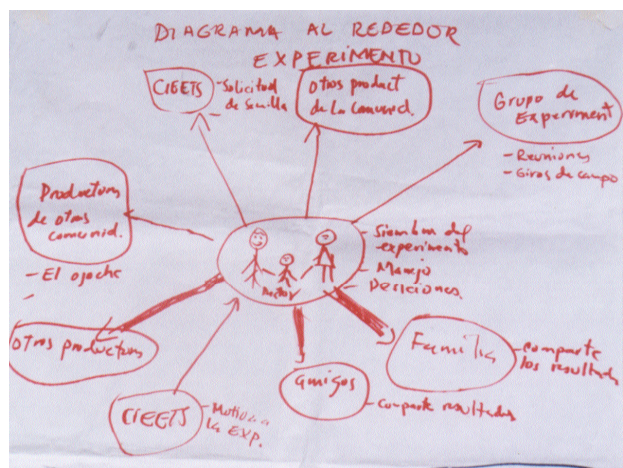 DIAGRAMA AL REDEDOR
EXPERIMENTO
CIEETS
-Solicitud
de Semilla
otros product
de La comunid.
Grupo de
Experiment
- Reuniones
- Giros de campo
Productores
de otras
comunid.
- El ojoche
- Siembra del
experimento
- Manejo
- Desiciones.
Otros productores
CIEETS
- Motiva a
la Exp.
amigos
- comparte resultados
Familia
- comparte
los resultados